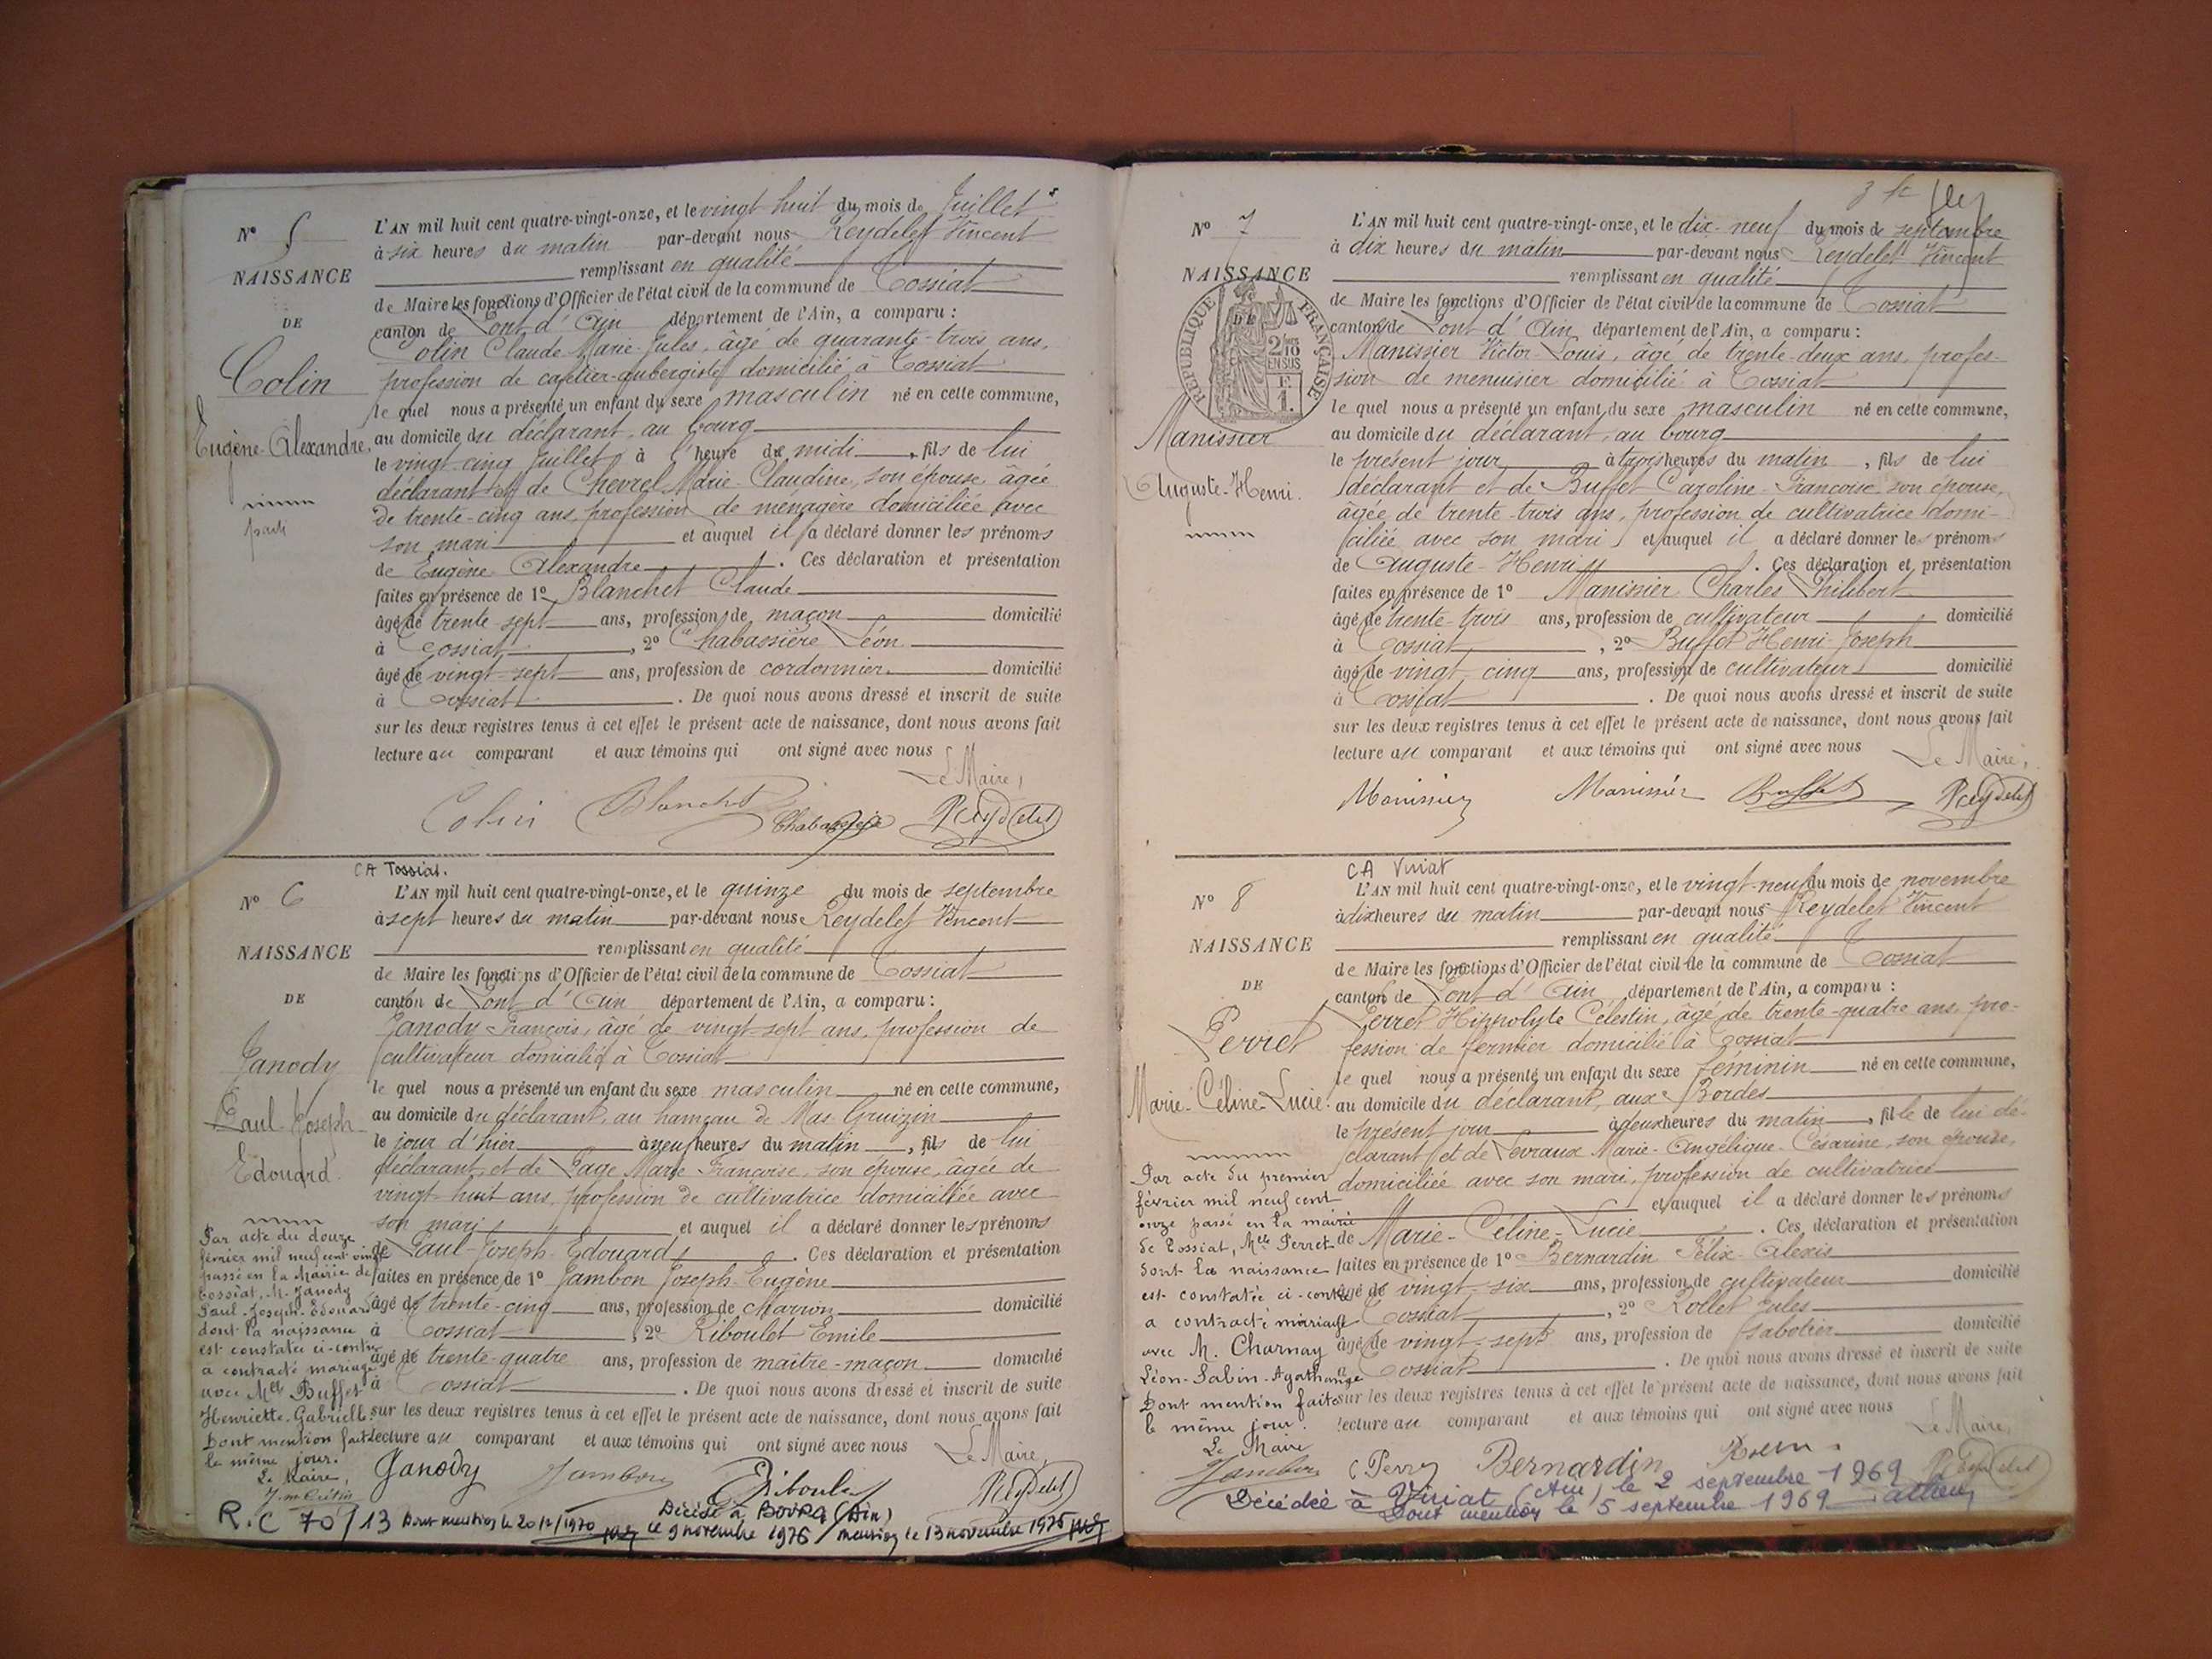 N° 5
NAISSANCE
DE
Colin
Eugène-Alexandre.
L'AN mil huit cent quatre-vingt-onze, et le vingt-huit du mois de Juillet
à six heures du matin par-devant nous Reydelet Vincent
remplissant en qualité
de Maire les fonctions d'Officier de l'état civil de la commune de Tossiat
canton de Pont d'Ain département de l'Ain, a comparu :
Colin Claude Marie-Jules, âgé de quarante-trois ans,
profession de cafetier-aubergiste domicilié à Tossiat
le quel nous a présenté un enfant du sexe masculin né en cette commune,
au domicile du déclarant, au bourg
le vingt-cinq Juillet à l'heure de midi, fils de lui
déclarant et de Chevrel Marie-Claudine, son épouse, âgée
de trente-cinq ans, profession de ménagère domiciliée avec
son mari et auquel il a déclaré donner les prénoms
de Eugène-Alexandre. Ces déclaration et présentation
faites en présence de 1° Blanchet Claude
âgé de trente-sept ans, profession de maçon domicilié
à Tossiat, 2° Chabassière Léon
âgé de vingt-sept ans, profession de cordonnier domicilié
à Tossiat. De quoi nous avons dressé et inscrit de suite
sur les deux registres tenus à cet effet le présent acte de naissance, dont nous avons fait
lecture au comparant et aux témoins qui ont signé avec nous
Le Maire,
Colin Blanchet Chabassière Reydelet
CA Tossiat.
N° 6
NAISSANCE
DE
Janody
Paul-Joseph
Edouard.
L'AN mil huit cent quatre-vingt-onze, et le quinze du mois de septembre
à sept heures du matin par-devant nous Reydelet Vincent
remplissant en qualité
de Maire les fonctions d'Officier de l'état civil de la commune de Tossiat
canton de Pont d'Ain département de l'Ain, a comparu :
Janody François, âgé de vingt-sept ans, profession de
cultivateur domicilié à Tossiat
le quel nous a présenté un enfant du sexe masculin né en cette commune,
au domicile du déclarant, au hameau de Mas Gruizin
le jour d'hier à neuf heures du matin, fils de lui
déclarant et de Page Marie-Françoise, son épouse, âgée de
vingt-huit ans, profession de cultivatrice domiciliée avec
son mari et auquel il a déclaré donner les prénoms
de Paul-Joseph-Edouard. Ces déclaration et présentation
faites en présence de 1° Jambon Joseph-Eugène
âgé de trente-cinq ans, profession de charron domicilié
à Tossiat, 2° Riboulet Emile
âgé de trente-quatre ans, profession de maître-maçon domicilié
à Tossiat. De quoi nous avons dressé et inscrit de suite
sur les deux registres tenus à cet effet le présent acte de naissance, dont nous avons fait
lecture au comparant et aux témoins qui ont signé avec nous
Le Maire,
Janody Jambon Riboulet Reydelet
Par acte du douze
février mil neuf cent vingt
passé en la Mairie de
Tossiat, M. Janody
Paul-Joseph-Edouard
dont la naissance
est constatée ci-contre
a contracté mariage
avec Melle Buffet
Henriette-Gabrielle.
Dont mention faite
le même jour.
Le Maire,
R.C 70/13 Dont mention le 20/2/1970
Décédé à BOURG (Ain)
le 9 novembre 1976 mention le 13 novembre 1976
N° 7
NAISSANCE
DE
RÉPUBLIQUE FRANÇAISE
2/10 EN SUS
F.
1.
Manissier
Auguste-Henri.
L'AN mil huit cent quatre-vingt-onze, et le dix-neuf du mois de septembre
à dix heures du matin par-devant nous Reydelet Vincent
remplissant en qualité
de Maire les fonctions d'Officier de l'état civil de la commune de Tossiat
canton de Pont d'Ain département de l'Ain, a comparu :
Manissier Victor-Louis, âgé de trente-deux ans, profes-
sion de menuisier domicilié à Tossiat
le quel nous a présenté un enfant du sexe masculin né en cette commune,
au domicile du déclarant, au bourg
le présent jour à trois heures du matin, fils de lui
déclarant et de Buffet Caroline-Françoise, son épouse,
âgée de trente-trois ans, profession de cultivatrice domi-
ciliée avec son mari et auquel il a déclaré donner les prénoms
de Auguste-Henri. Ces déclaration et présentation
faites en présence de 1° Manissier Charles Philibert
âgé de trente-trois ans, profession de cultivateur domicilié
à Tossiat, 2° Buffet Henri-Joseph
âgé de vingt-cinq ans, profession de cultivateur domicilié
à Tossiat. De quoi nous avons dressé et inscrit de suite
sur les deux registres tenus à cet effet le présent acte de naissance, dont nous avons fait
lecture au comparant et aux témoins qui ont signé avec nous
Le Maire,
Manissier Manissier Buffet Reydelet
CA Viriat
N° 8
NAISSANCE
DE
Perret
Marie-Céline-Lucie.
L'AN mil huit cent quatre-vingt-onze, et le vingt-neuf du mois de novembre
à dix heures du matin par-devant nous Reydelet Vincent
remplissant en qualité
de Maire les fonctions d'Officier de l'état civil de la commune de Tossiat
canton de Pont d'Ain département de l'Ain, a comparu :
Perret Hippolyte Célestin, âgé de trente-quatre ans, pro-
fession de fermier domicilié à Tossiat
le quel nous a présenté un enfant du sexe féminin né en cette commune,
au domicile du déclarant, aux Bordes
le présent jour à deux heures du matin, fille de lui dé-
clarant et de Marie-Angélique-Césarine, son épouse,
domiciliée avec son mari, profession de cultivatrice
et auquel il a déclaré donner les prénoms
de Marie-Céline-Lucie. Ces déclaration et présentation
faites en présence de 1° Bernardin Félix-Alexis
âgé de vingt-six ans, profession de cultivateur domicilié
à Tossiat, 2° Rollet Jules
âgé de vingt-sept ans, profession de sabotier domicilié
à Tossiat. De quoi nous avons dressé et inscrit de suite
sur les deux registres tenus à cet effet le présent acte de naissance, dont nous avons fait
lecture au comparant et aux témoins qui ont signé avec nous
Le Maire,
Perret Bernardin Reydelet
Par acte du premier
février mil neuf cent
onze passé en la mairie
de Tossiat, Melle Perret
dont la naissance
est constatée ci-contre
a contracté mariage
avec M. Charnay
Léon-Sabin-Agathange
Dont mention faite
le même jour.
Le Maire
Jambon
Décédée à Viriat (Ain) le 2 septembre 1969
Dont mention le 5 septembre 1969